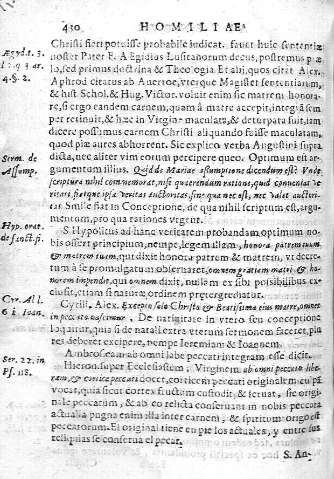 430 HOMILIAE
Christi fieri potuisse probabile indicat. fauet huic sententiæ
Ægyd. 3.
noster Pater F. AEgidius Lusitanorum decus, postremus præ
l. q 3 ar.
lo, sed primus doctrina & Theologia. Et alij, quos citat Alex.
4. §. 2.
Aphrod citatus ab Auerroe, vterque Magister sententiarum,
& hist Schol. & Hug. Victor. volunt enim sic matrem honora-
re, si ergo eandem carnem, quam à matre accepit, integrã sem
per retinuit, & hæc in Virgine maculata, & deturpata fuit, iam
dicere possumus carnem Christi aliquando fuisse maculatam,
quod piæ aures abhorrent. Sic explico verba Augustini supra
dicta, nec aliter vim eorum percipere queo. Optimum est ar-
Serm. de
gumentum illius. Quid de Mariæ assumptione dicendum est? Vnde
Assump.
scriptura nihil commemorat, nisi quærendum ratione, quid conueniat ve
ritati, fiatque ipsa veritas auctoritas, sine qua nec est, nec valet auctori
tas. Simile fiat in Conceptione, de qua nihil scriptum est, argu-
mentum, pro qua rationes vrgent.
Hyp. orat.
S. Hypolitus ad hanc veritatem probandam optimum no-
de sanctif.
bis offert principium, nempe, legem illam, honora patrem tuum
& matrem tuam, qui dixit honora patrem & matrem, vt decre-
tum à se promulgatum obseruaret, omnem gratiam matri & ho
norem impendit, qui omnem dixit, nullam ex sibi possibilibus ex
clusit, etiam si naturæ ordinem prætergrediatur.
Cyr. Al. l.
Cyrill. Alex. Excepto solo Christo & Beatissima eius matre, omnes
6 i. Ioan.
in peccato nascimur. De natiuitate in vtero seu conceptione
loquitur, quia si de natali extra vterum sermonem faceret, plu
res deberet excipere, nempe Ieremiam & Ioannem.
Ser. 22. in
Ambros. eam ab omni labe peccati integram esse dicit.
Ps. 118.
Hieron. super Ecclesiastem, Virginem ab omni peccato libe-
ram, & cortice peccati docet, corticem peccati originalem culpã
vocat, quia sicut cortex fructum custodit, & seruat, sic origi
nale peccatum, & ab eo relicta conseruant in nobis peccata
actualia pugna enim illa inter carnem, & spiritum origo est
peccatorum. Et original tiene en pie los actuales, y entre sus
reliquias se conserua el pecar.
S. An-